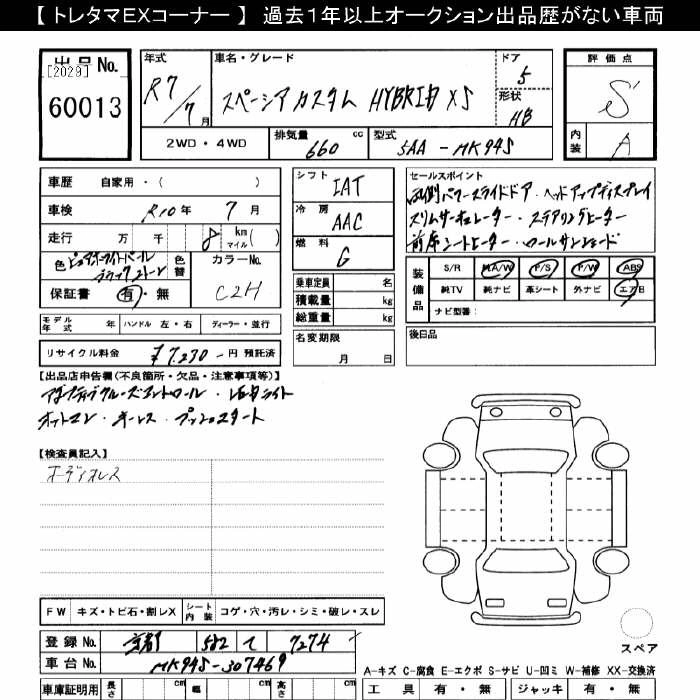 【 トレタマEXコーナー 】 過去１年以上オークション出品歴がない車両
出品 No.
[2029]
60013
年式
R7/7月
車名・グレード
スペーシアカスタム HYBRID XS
ドア
5
形状
HB
2WD・4WD
排気量 660 cc
型式 5AA-MK94S
評価点
S
内装
A
車歴 自家用・( )
車検 R10年 7月
走行 万 千 8 km マイル ( )
色 ピュアホワイトパール
ブラック2トーン
色替
カラーNo.
C2H
保証書 有・無
シフト IAT
冷房 AAC
燃料 G
乗車定員 名
積載量 kg
総重量 kg
セールスポイント
両側パワースライドドア・ヘッドアップディスプレイ
スリムサーキュレーター・ステアリングヒーター
前席シートヒーター・ロールサンシェード
装備品
S/R A/W P/S P/W ABS
純TV 純ナビ 革シート 外ナビ エアB
ナビ型番:
モデル年式 年 ハンドル 左・右 ディーラー・並行
リサイクル料金 ¥7,230-円 預託済
名変期限
月 日
後日品
【出品店申告欄(不良箇所・欠品・注意事項等)】
アダプティブクルーズコントロール・LEDライト
オートエアコン・キーレス・プッシュスタート
【検査員記入】
オーディオレス
FW キズ・トビ石・割レX
シート内装 コゲ・穴・汚レ・シミ・破レ・スレ
登録 No. 京都 582 て 7274
車台 No. MK94S-307469
車庫証明用 長さ cm 幅 cm 高さ cm
スペア
A-キズ C-腐食 E-エクボ S-サビ U-凹ミ W-補修 XX-交換済
工具 有・無 ジャッキ 有・無